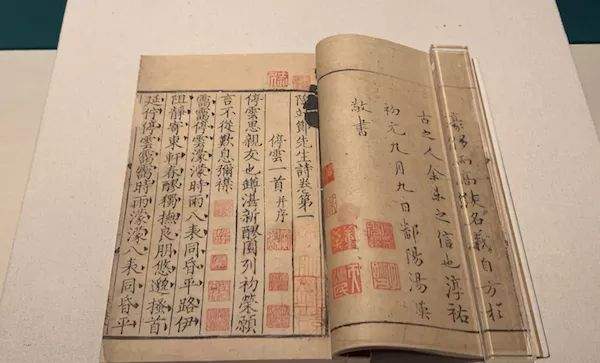 豪傑而高談名義自方於
古之人余未之信也淳祐
初元九月九日鄱陽湯漢
敬書
陶靖節先生詩卷第一
停雲一首并序
停雲思親友也罇湛新醪園列初榮願
言不從歎息彌襟
靄靄停雲濛濛時雨八表同昏平路伊
阻靜寄東軒春醪獨撫良朋悠邈搔首
延佇停雲靄靄時雨濛濛八表同昏平